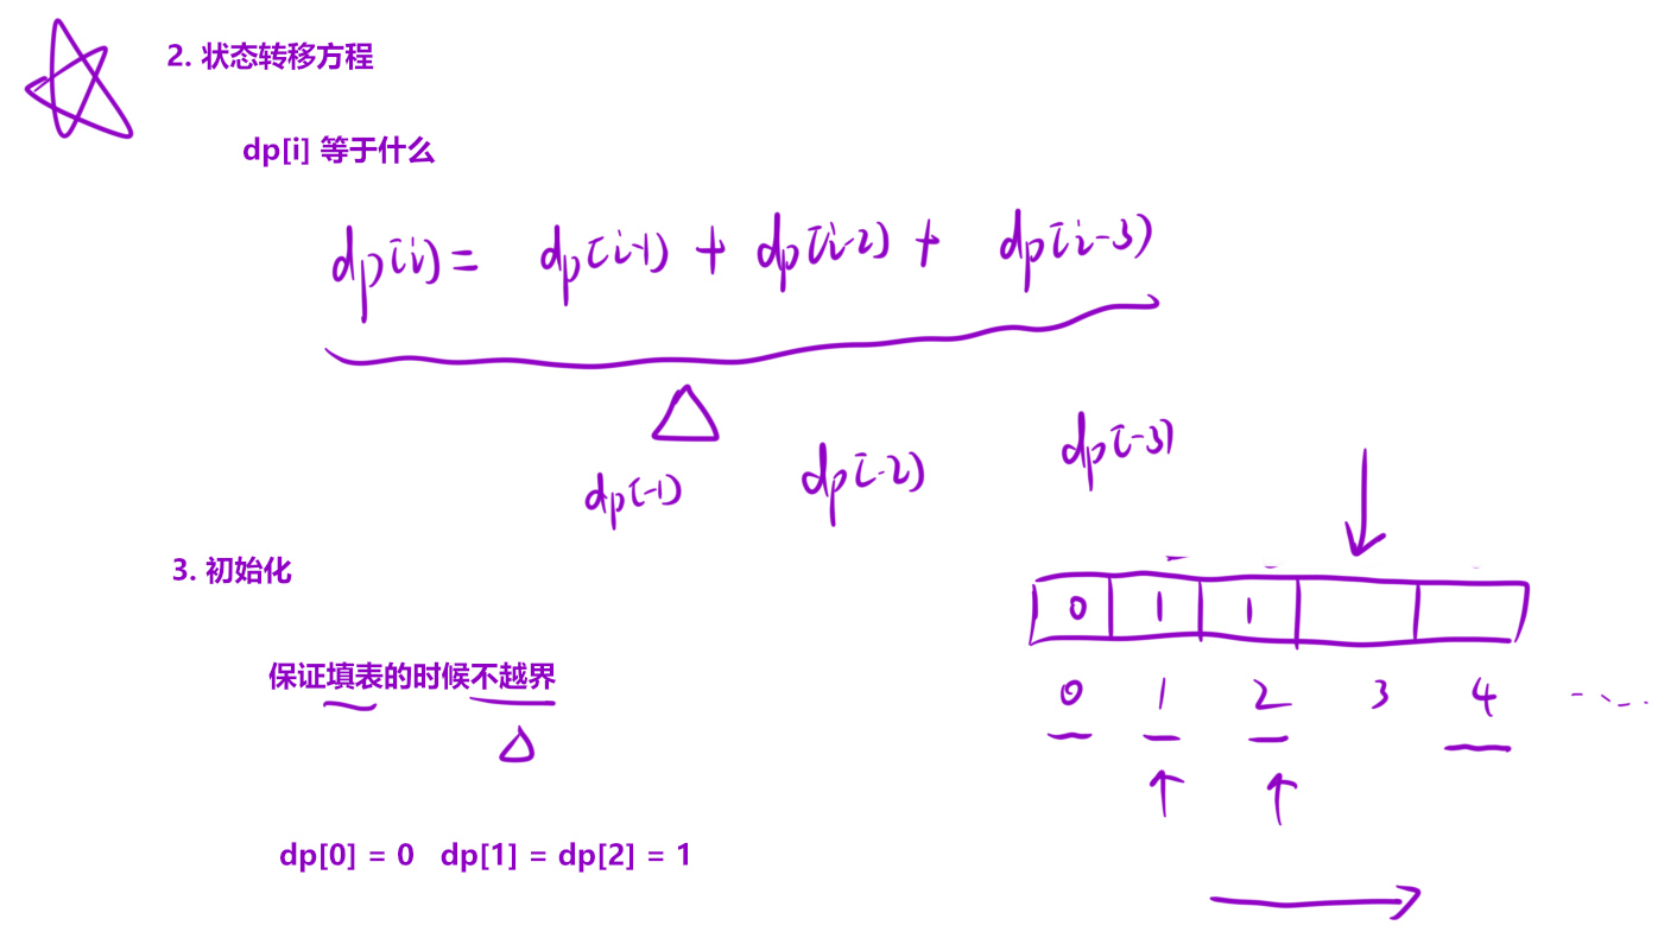 2. 状态转移方程
dp[i] 等于什么
dp[i] = dp[i-1] + dp[i-2] + dp[i-3]
dp[-1] dp[-2] dp[-3]
3. 初始化
0 1 1
保证填表的时候不越界
0 1 2 3 4 ....
dp[0] = 0 dp[1] = dp[2] = 1